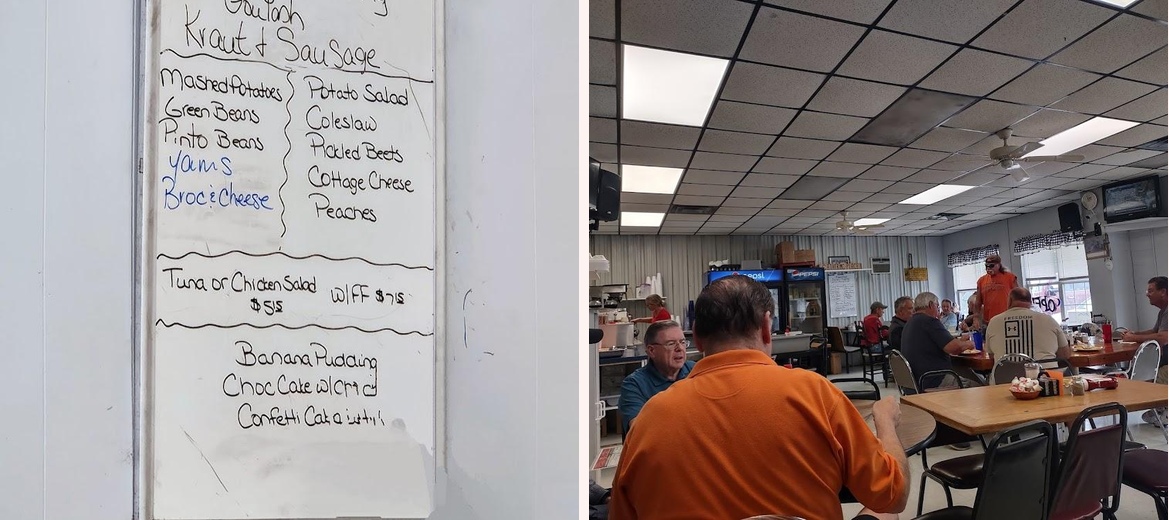 Goulash
Kraut & Sausage
Mashed Potatoes
Green Beans
Pinto Beans
Yams
Broc & Cheese
Potato Salad
Coleslaw
Pickled Beets
Cottage Cheese
Peaches
Tuna or Chicken Salad
$5.15
W/FF $7.15
Banana Pudding
Choc Cake w/
Confetti
pepsi
PEPSI
FREEDOM
OPEN